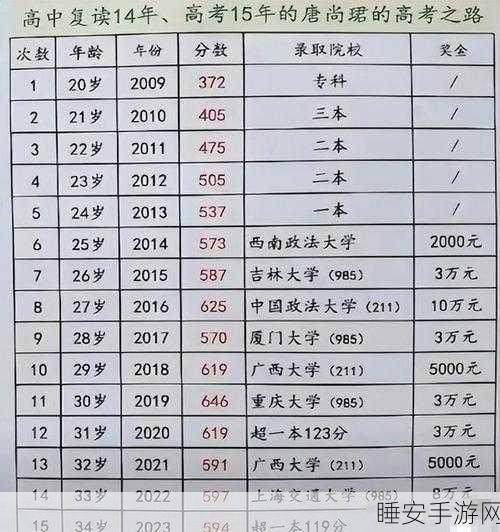 高中复读14年、高考15年的唐尚珺的高考之路
次数 年龄 年份 分数 录取院校 奖金
1 20岁 2009 372 专科 /
2 21岁 2010 405 三本 /
3 22岁 2011 475 二本 /
4 23岁 2012 505 二本 /
5 24岁 2013 537 一本 /
6 25岁 2014 573 西南政法大学 2000元
7 26岁 2015 587 吉林大学（985） 3万元
8 27岁 2016 625 中国政法大学（211） 10万元
9 28岁 2017 570 厦门大学（985） 3万元
10 29岁 2018 619 广西大学（211） 5000元
11 30岁 2019 646 重庆大学（985） 3万元
12 31岁 2020 619 超一本123分 3万元
13 32岁 2021 591 广西大学（211） 5000元
14 33岁 2022 597 上海交通大学（985） 8万元
15 34岁 2023 594 超一本119分
睡安手游网